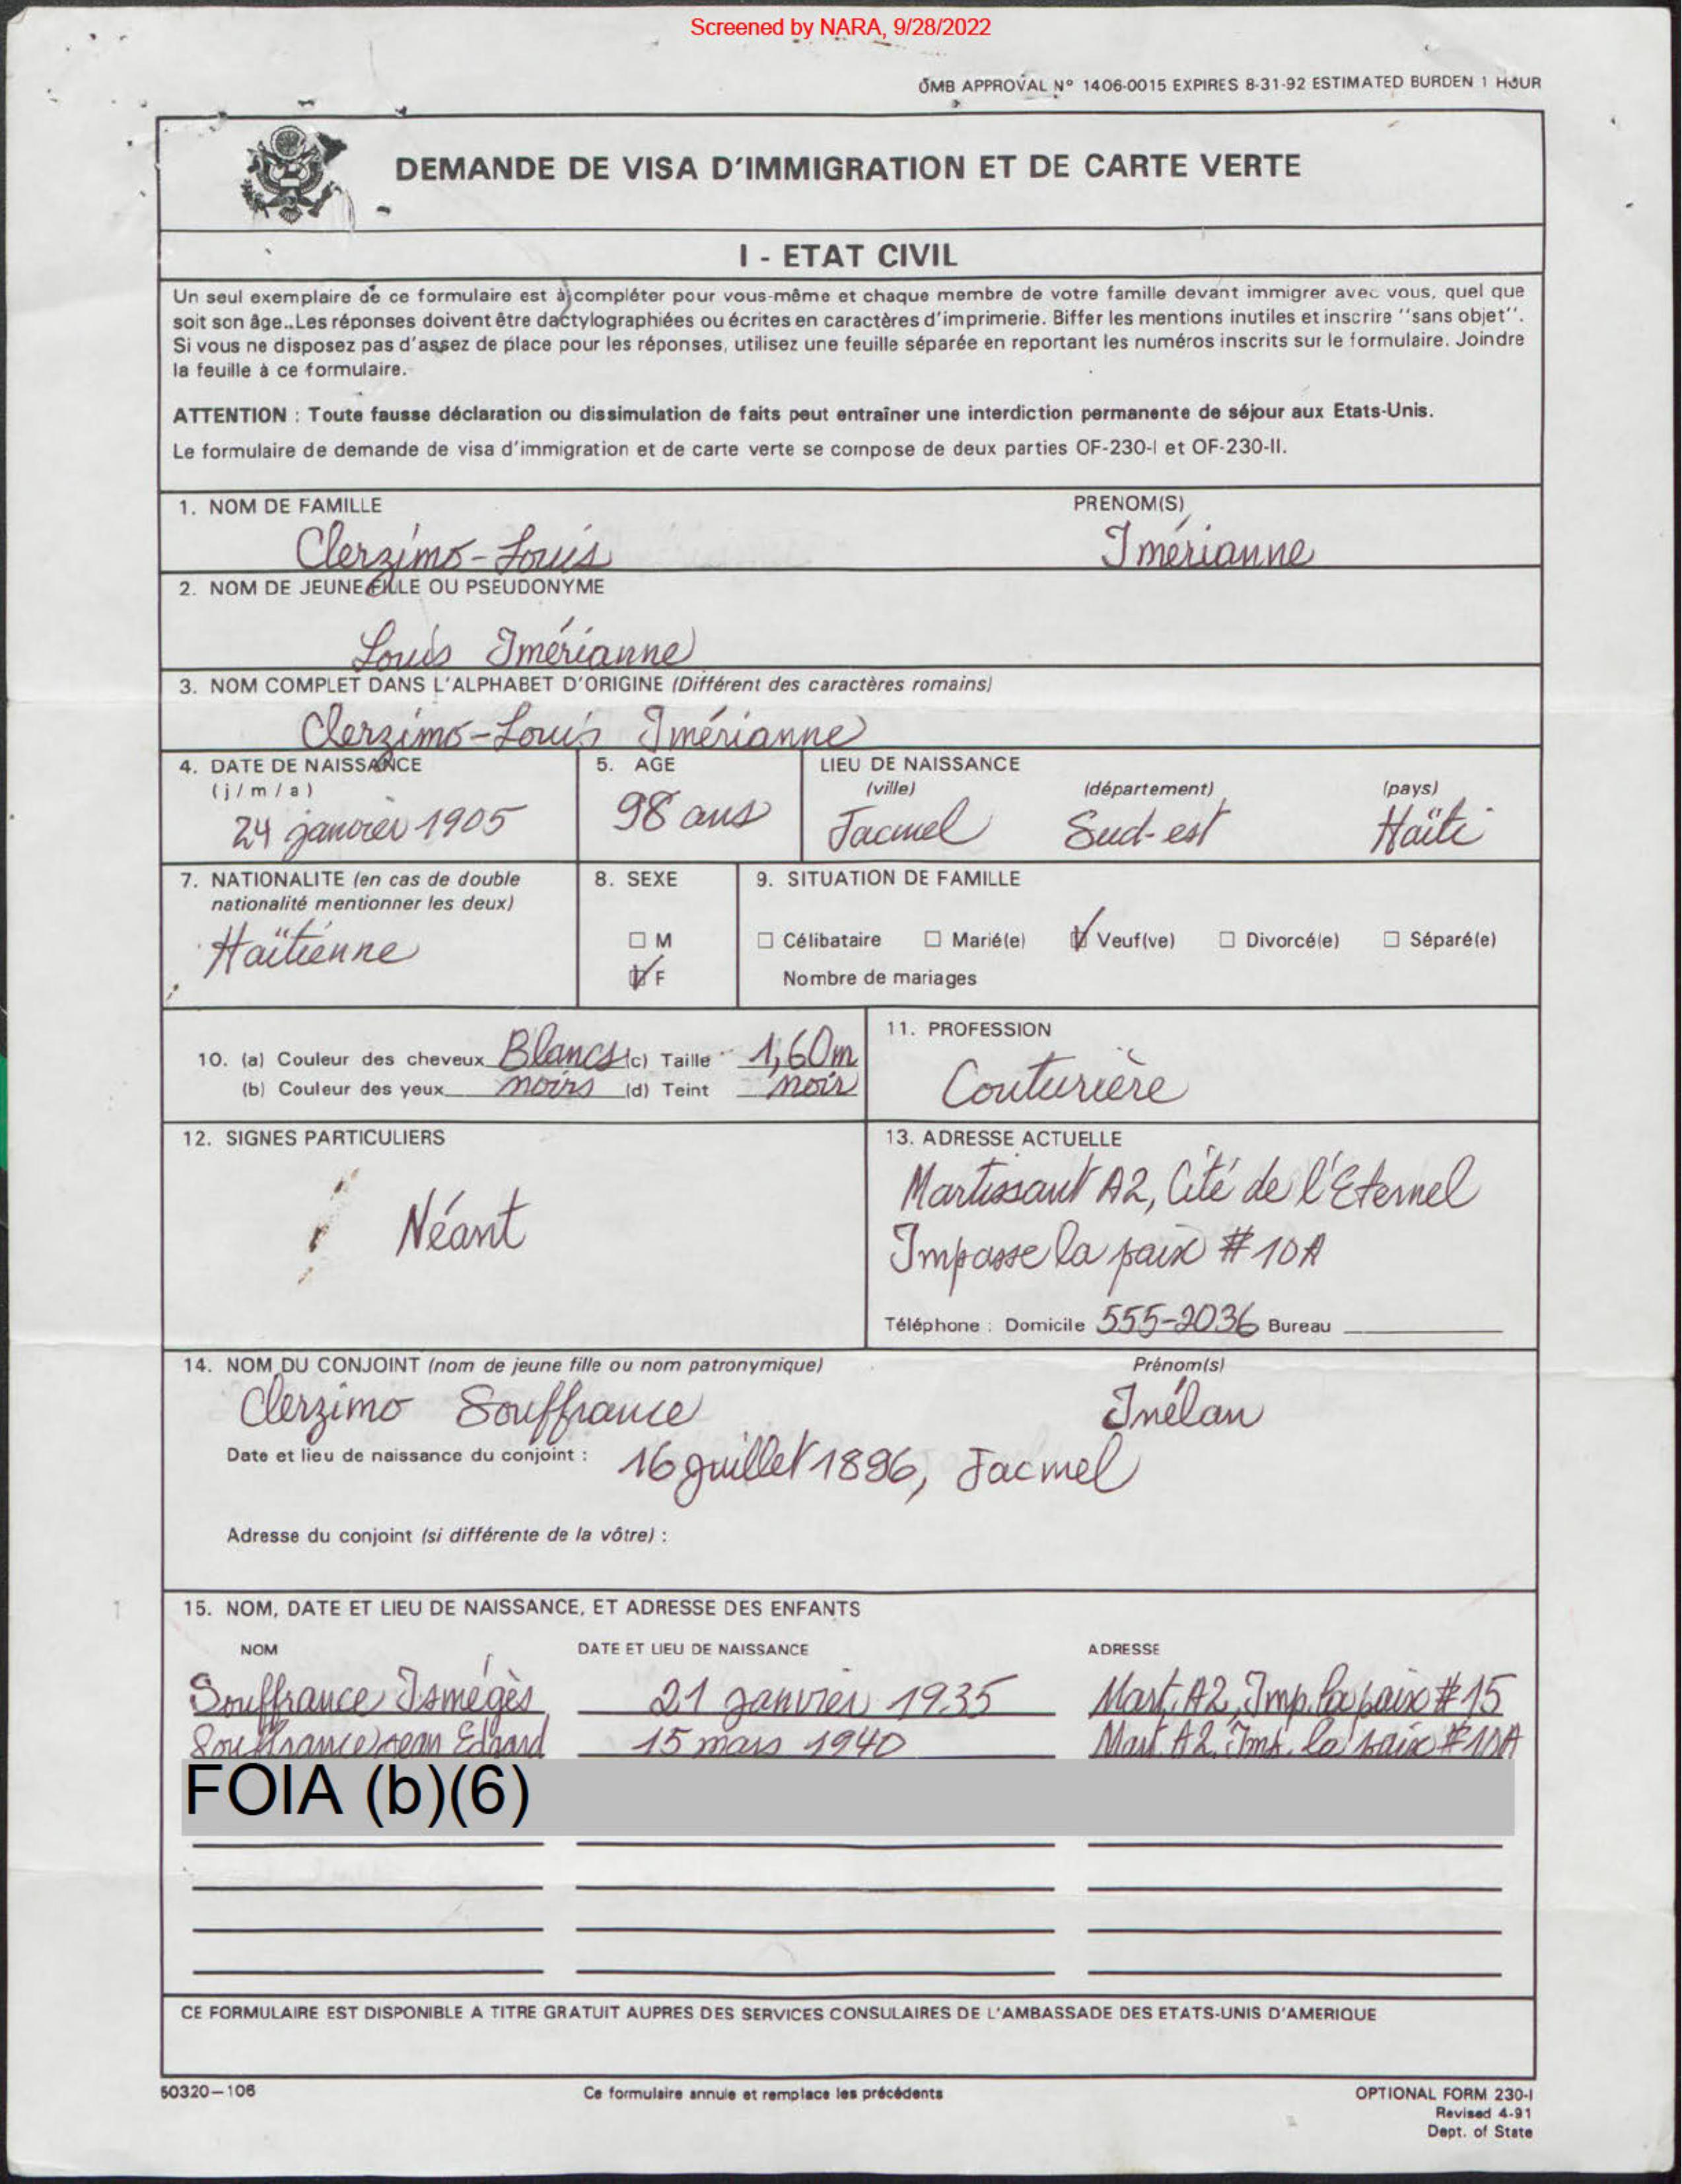 Screened by NARA, 9/28/2022
OMB APPROVAL Nº 1406-0015 EXPIRES 8-31-92 ESTIMATED BURDEN 1 HOUR
DEMANDE DE VISA D'IMMIGRATION ET DE CARTE VERTE
I - ETAT CIVIL
Un seul exemplaire de ce formulaire est à compléter pour vous-même et chaque membre de votre famille devant immigrer avec vous, quel que
soit son âge. Les réponses doivent être dactylographiées ou écrites en caractères d'imprimerie. Biffer les mentions inutiles et inscrire ''sans objet''.
Si vous ne disposez pas d'assez de place pour les réponses, utilisez une feuille séparée en reportant les numéros inscrits sur le formulaire. Joindre
la feuille à ce formulaire.
ATTENTION : Toute fausse déclaration ou dissimulation de faits peut entraîner une interdiction permanente de séjour aux Etats-Unis.
Le formulaire de demande de visa d'immigration et de carte verte se compose de deux parties OF-230-I et OF-230-II.
1. NOM DE FAMILLE PRENOM(S)
Clerzimo-Louis Imérianne
2. NOM DE JEUNE FILLE OU PSEUDONYME
Louis Imérianne
3. NOM COMPLET DANS L'ALPHABET D'ORIGINE (Différent des caractères romains)
Clerzimo-Louis Imérianne
4. DATE DE NAISSANCE 5. AGE LIEU DE NAISSANCE
(j/m/a) (ville) (département) (pays)
24 janvier 1905 98 ans Jacmel Sud-est Haïti
7. NATIONALITE (en cas de double 8. SEXE 9. SITUATION DE FAMILLE
nationalité mentionner les deux)
Haïtienne M Célibataire Marié(e) Veuf(ve) Divorcé(e) Séparé(e)
F Nombre de mariages
10. (a) Couleur des cheveux Blancs (c) Taille 1,60m 11. PROFESSION
(b) Couleur des yeux noirs (d) Teint noir Couturière
12. SIGNES PARTICULIERS 13. ADRESSE ACTUELLE
Martissant A2, Cité de l'Eternel
Néant Impasse la paix # 10A
Téléphone : Domicile 555-2036 Bureau
14. NOM DU CONJOINT (nom de jeune fille ou nom patronymique) Prénom(s)
Clerzimo Souffrance Inélan
Date et lieu de naissance du conjoint : 16 juillet 1896, Jacmel
Adresse du conjoint (si différente de la vôtre) :
15. NOM, DATE ET LIEU DE NAISSANCE, ET ADRESSE DES ENFANTS
NOM DATE ET LIEU DE NAISSANCE ADRESSE
Souffrance Ismégès 21 janvier 1935 Mart. A2, Imp. la paix # 15
Souffrance Jean Edrard 15 mars 1940 Mart. A2, Imp. la paix # 10A
FOIA (b)(6)
CE FORMULAIRE EST DISPONIBLE A TITRE GRATUIT AUPRES DES SERVICES CONSULAIRES DE L'AMBASSADE DES ETATS-UNIS D'AMERIQUE
50320-106 Ce formulaire annule et remplace les précédents OPTIONAL FORM 230-I
Revised 4-91
Dept. of State